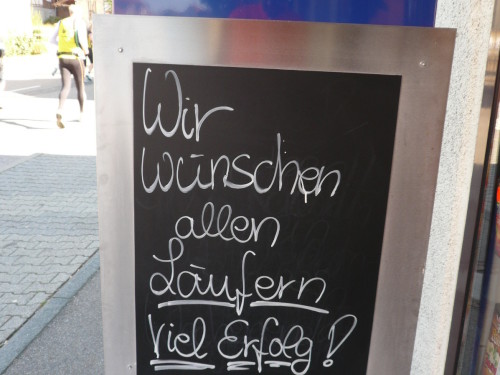 Wir
wünschen
allen
Läufern
viel Erfolg!